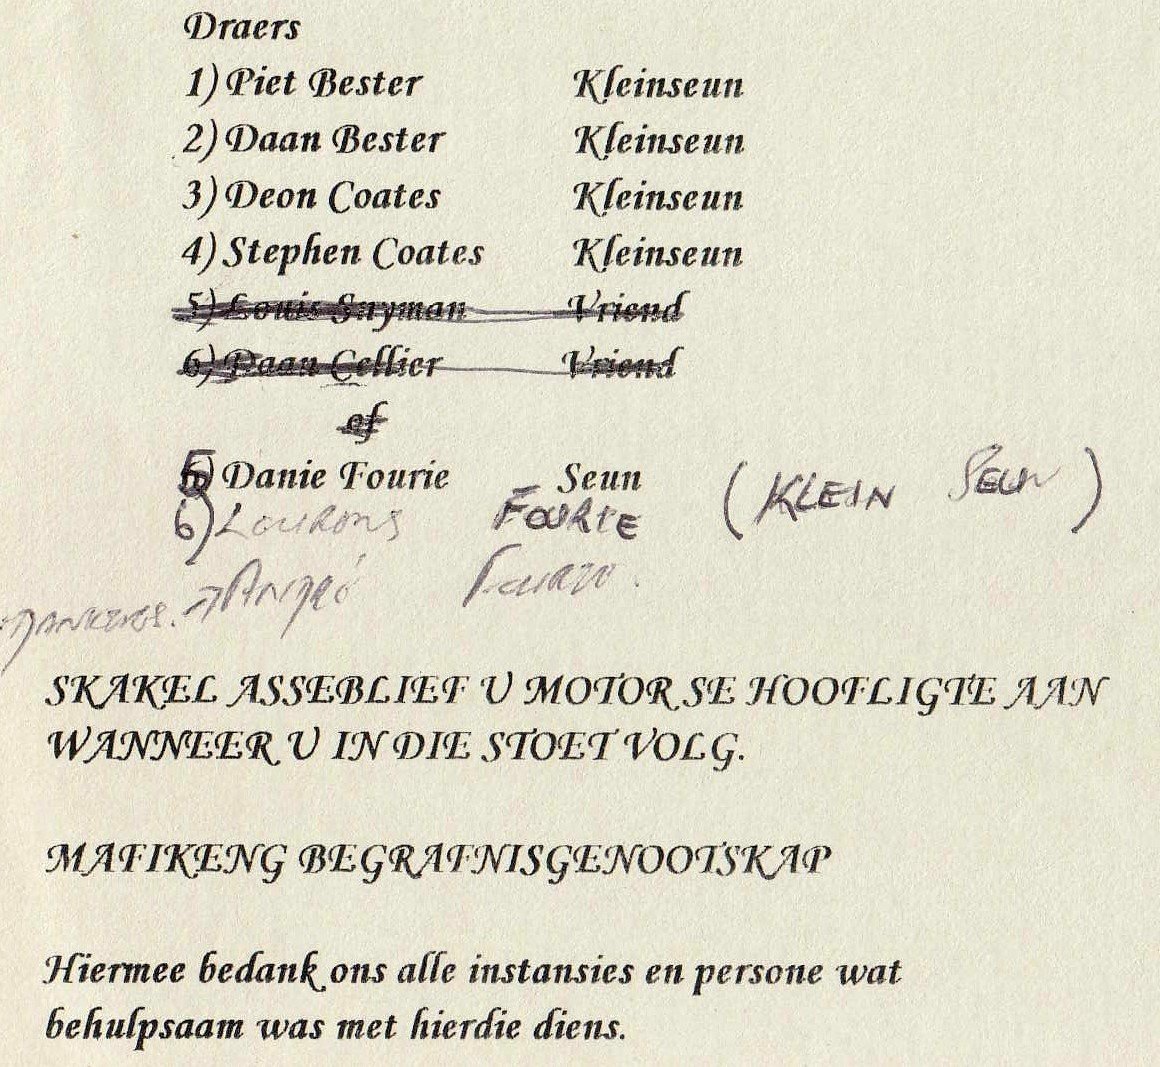 Draers
1) Piet Bester Kleinseun
2) Daan Bester Kleinseun
3) Deon Coates Kleinseun
4) Stephen Coates Kleinseun
5) Louis Snyman Vriend
6) Daan Cellier Vriend
of
5) Danie Fourie Seun (KLEIN SEUN)
6) FOURIE
SKAKEL ASSEBLIEF U MOTOR SE HOOFLIGTE AAN
WANNEER U IN DIE STOET VOLG.
MAFIKENG BEGRAFNISGENOOTSKAP
Hiermee bedank ons alle instansies en persone wat
behulpsaam was met hierdie diens.